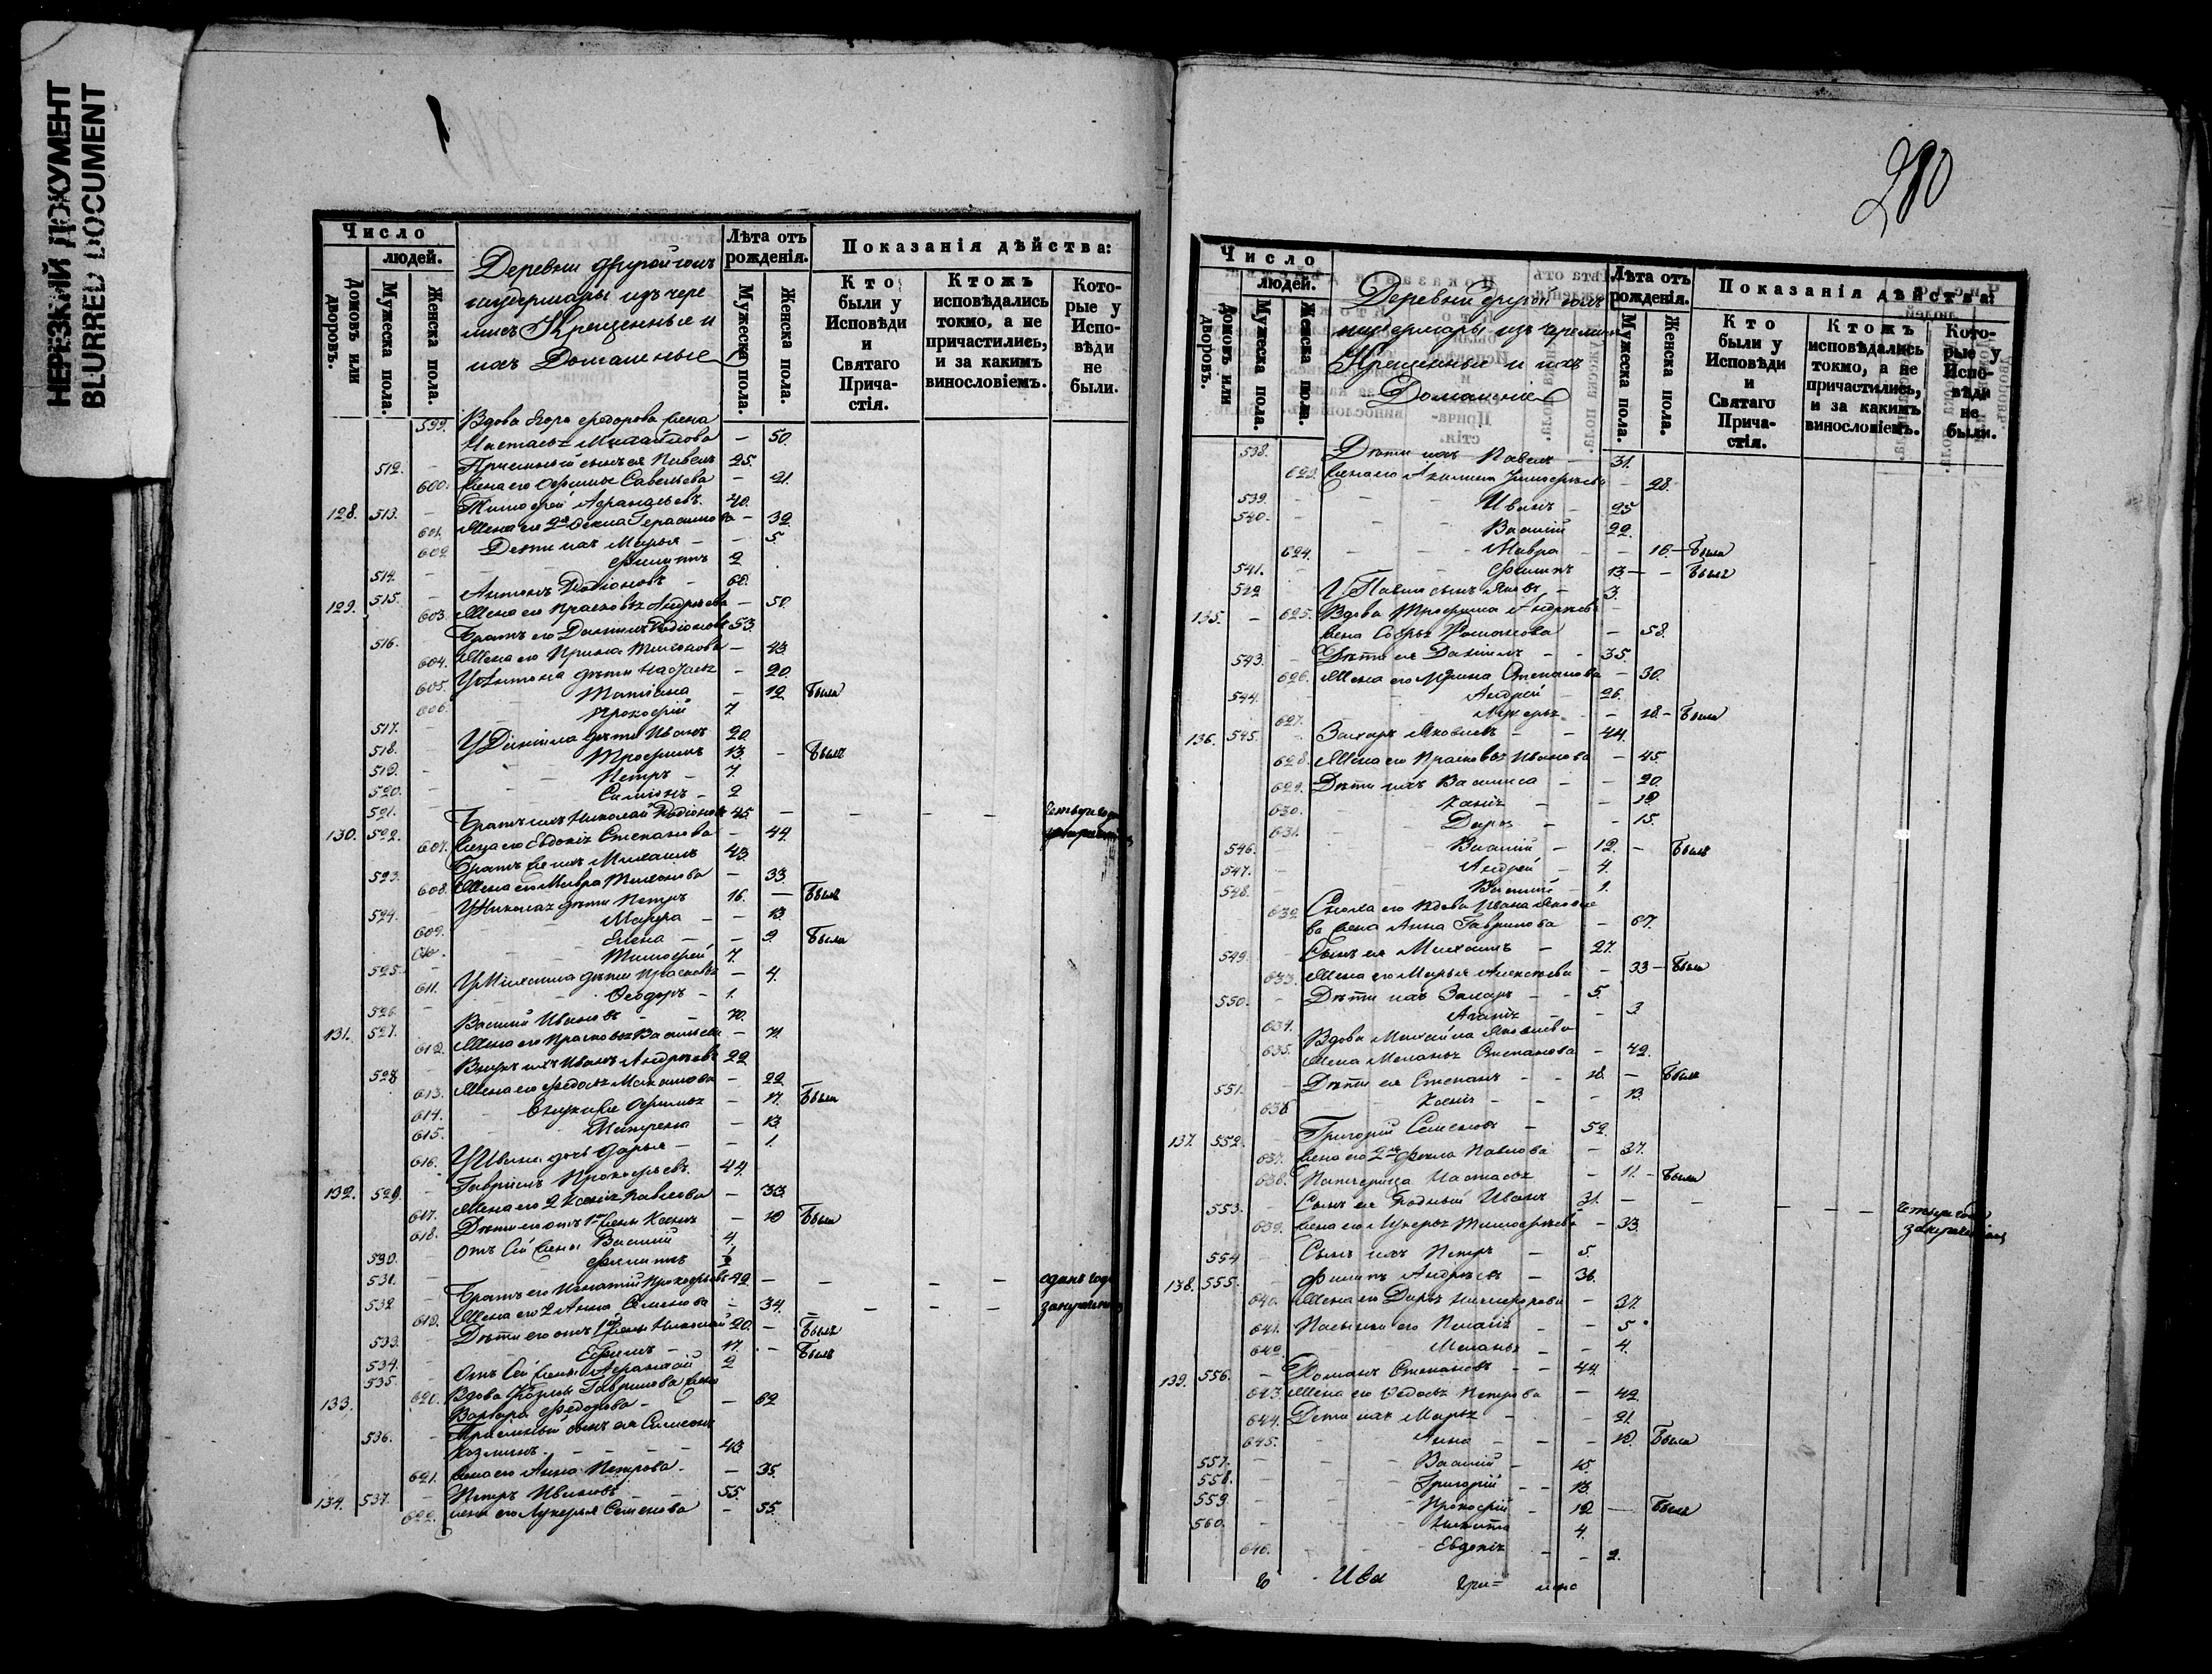 НЕРЕЗКИЙ ДОКУМЕНТ
BLURRED DOCUMENT
Число
людей.
Домовъ или дворовъ.
Мужеска пола.
Женска пола.
Деревни другой
изъ чере
мисъ Крещенные и
ихъ Домашные
Лѣта отъ рожденія.
Мужеска пола.
Женска пола.
Показанія дѣйства:
Кто были у Исповѣди и Святаго Причастія.
Ктожъ исповѣдались токмо, а не причастились, и за какимъ винословіемъ.
Которые у Исповѣди не были.
599. Вдова Егора Федорова жена
Настасья Михайлова – 50.
512. – Приемный сынъ ея Павелъ 25.
600. жена его Ефимья Савельева – 21.
128. 513. – Тимофей Афанасьевъ 40.
601. Жена его 2я Фекла Герасимова – 32
602 Дети ихъ Марья – – 5
514. – Филиппъ 2
129. 515. – Антонъ Родіоновъ – 60.
603. Жена его Прасковья Андреева – 50.
516. Братъ его Данилъ Родіоновъ 53.
604. Жена его Ирина Тихонова – 43.
605. У Антона дѣти Настасья – 20.
606. Татіана – 12 была
517. – Прокофій 7
518. У Данила дѣти Иванъ 20.
519. – Трофимъ 13. – былъ
520. – Петръ – 7.
521. – Симіонъ – 2
130. 522. Братъ ихъ Николай Родіоновъ 45. – – –
607. Жена его Евдокія Степанова – 44.
523. Братъ же ихъ Михаилъ 43.
608. Жена его Мавра Тихонова – 33.
524. У Николая дѣти Петръ 16. – былъ
609. Марфа – – 13.
610. Елена – – 9. была
525. – Тимофей 7.
611. У Михаила дѣти Прасковья – 4.
526. – Феодоръ – 1.
131. 527. Василій Ивановъ – 70.
612. Жена его Прасковья Васильева – 71.
528 – Внукъ ихъ Иванъ Андреевъ 22
613. Жена его Федосья Максимова – 22
614. – внуки же Ефимья – 17. была
615. – Матрена – 13.
616. У Ивана дочь Дарья – – 1.
132. 529. – Гавріилъ Прокофьевъ 44.
617. Жена его 2 Ксенія Павлова – 33
618. Дѣти его отъ 1й жены Ксенія – 10 была
530. отъ сей жены Василій 4.
531. – Филиппъ
532 Братъ его Игнатій Прокофьевъ 42 – – – – одинъ годъ
619. Жена его 2 Анна Семенова – 34. – – – –
533. Дѣти его отъ 1й жены Николай 20. – былъ
534. – Ефимъ – 17. – былъ
535. – отъ сей жены Афанасій 2
133. 620. Вдова Козьмы Гаврилова жена
Варвара Федорова – – 62
536. – Приемный сынъ ея Симеонъ
Козминъ. – – – 43
621. жена его Анна Петрова – – 35.
134. 537. – Петръ Ивановъ – – 55.
622. жена его Лукерья Семенова – 55
280
Число
людей.
Домовъ или дворовъ.
Мужеска пола.
Женска пола.
Деревни другой
изъ черемисъ
Крещенные и ихъ
Домашніе
Лѣта отъ рожденія.
Мужеска пола.
Женска пола.
Показанія дѣйства:
Кто были у Исповѣди и Святаго Причастія.
Ктожъ исповѣдались токмо, а не причастились, и за какимъ винословіемъ.
Которые у Исповѣди не были.
538. Дѣти ихъ Павелъ 31.
623. Жена его Акилина Тимофеева – 28.
539. – – Иванъ – 25
540. – – Василій 22.
624. – – – Мавра – – 16. – была
541. – – Филиппъ 13 – – былъ
542 У Павла сынъ Яковъ – 3.
135. – 625. Вдова Трофима Андреева
жена Софья Романова – 58.
543. – Дѣти ея Даніилъ – – 35.
626. Жена его Ирина Степанова – 30.
544. Андрей – 26.
627. Лукерья – – 18 – была
136. 545. – Захаръ Яковлевъ – – 44.
628. Жена его Прасковья Иванова – 45.
629. Дѣти ихъ Василиса – – 20.
630. Ксенія – –
631. Дарья – – 15.
546. Василій – 12. – былъ
547. – Андрей – 4.
548. – Василій – 1.
632 Сноха его вдова Ивана Яковле
ва жена Анна Гаврилова – 67.
549. – Сынъ ея Михаилъ – 27.
633. Жена его Марья Алексеева – 33 – была
550. – Дѣти ихъ Захаръ – – 5.
634. Агапія – – 3.
635. Вдова Михаила Яковлева
жена Меланья Степанова – 42.
551. – Дѣти ея Степанъ – – 18. – былъ
636 Ксенія – – – 13.
137. 552. – Григорій Семеновъ – 52.
637. жена его 2я Фекла Павлова – 37.
638. Патчерица Настасья – 11. – была
553. – Сынъ ея Родный Иванъ 31. – – – – –
639. жена его Лукерья Тимофеева – 33.
554 – Сынъ ихъ Петръ – 5.
138. 555. – Филиппъ Андреевъ – 36.
640. Жена его Дарья Никифорова – 37.
641. Посынки его Пелагія – – 5
642. Меланья – – 4.
139. 556. – Романъ Степановъ – – 44.
643. Жена его Федосья Петрова – 42.
644. Дети ихъ Марья – – 21.
645. – Анна – – была
557. – – – Василій – 15.
558. – – – Григорій – – 13.
559. – – – Прокофій – 12 – былъ
560. – – – Никита 4.
646. – – Евдокія – – 2.
Ива